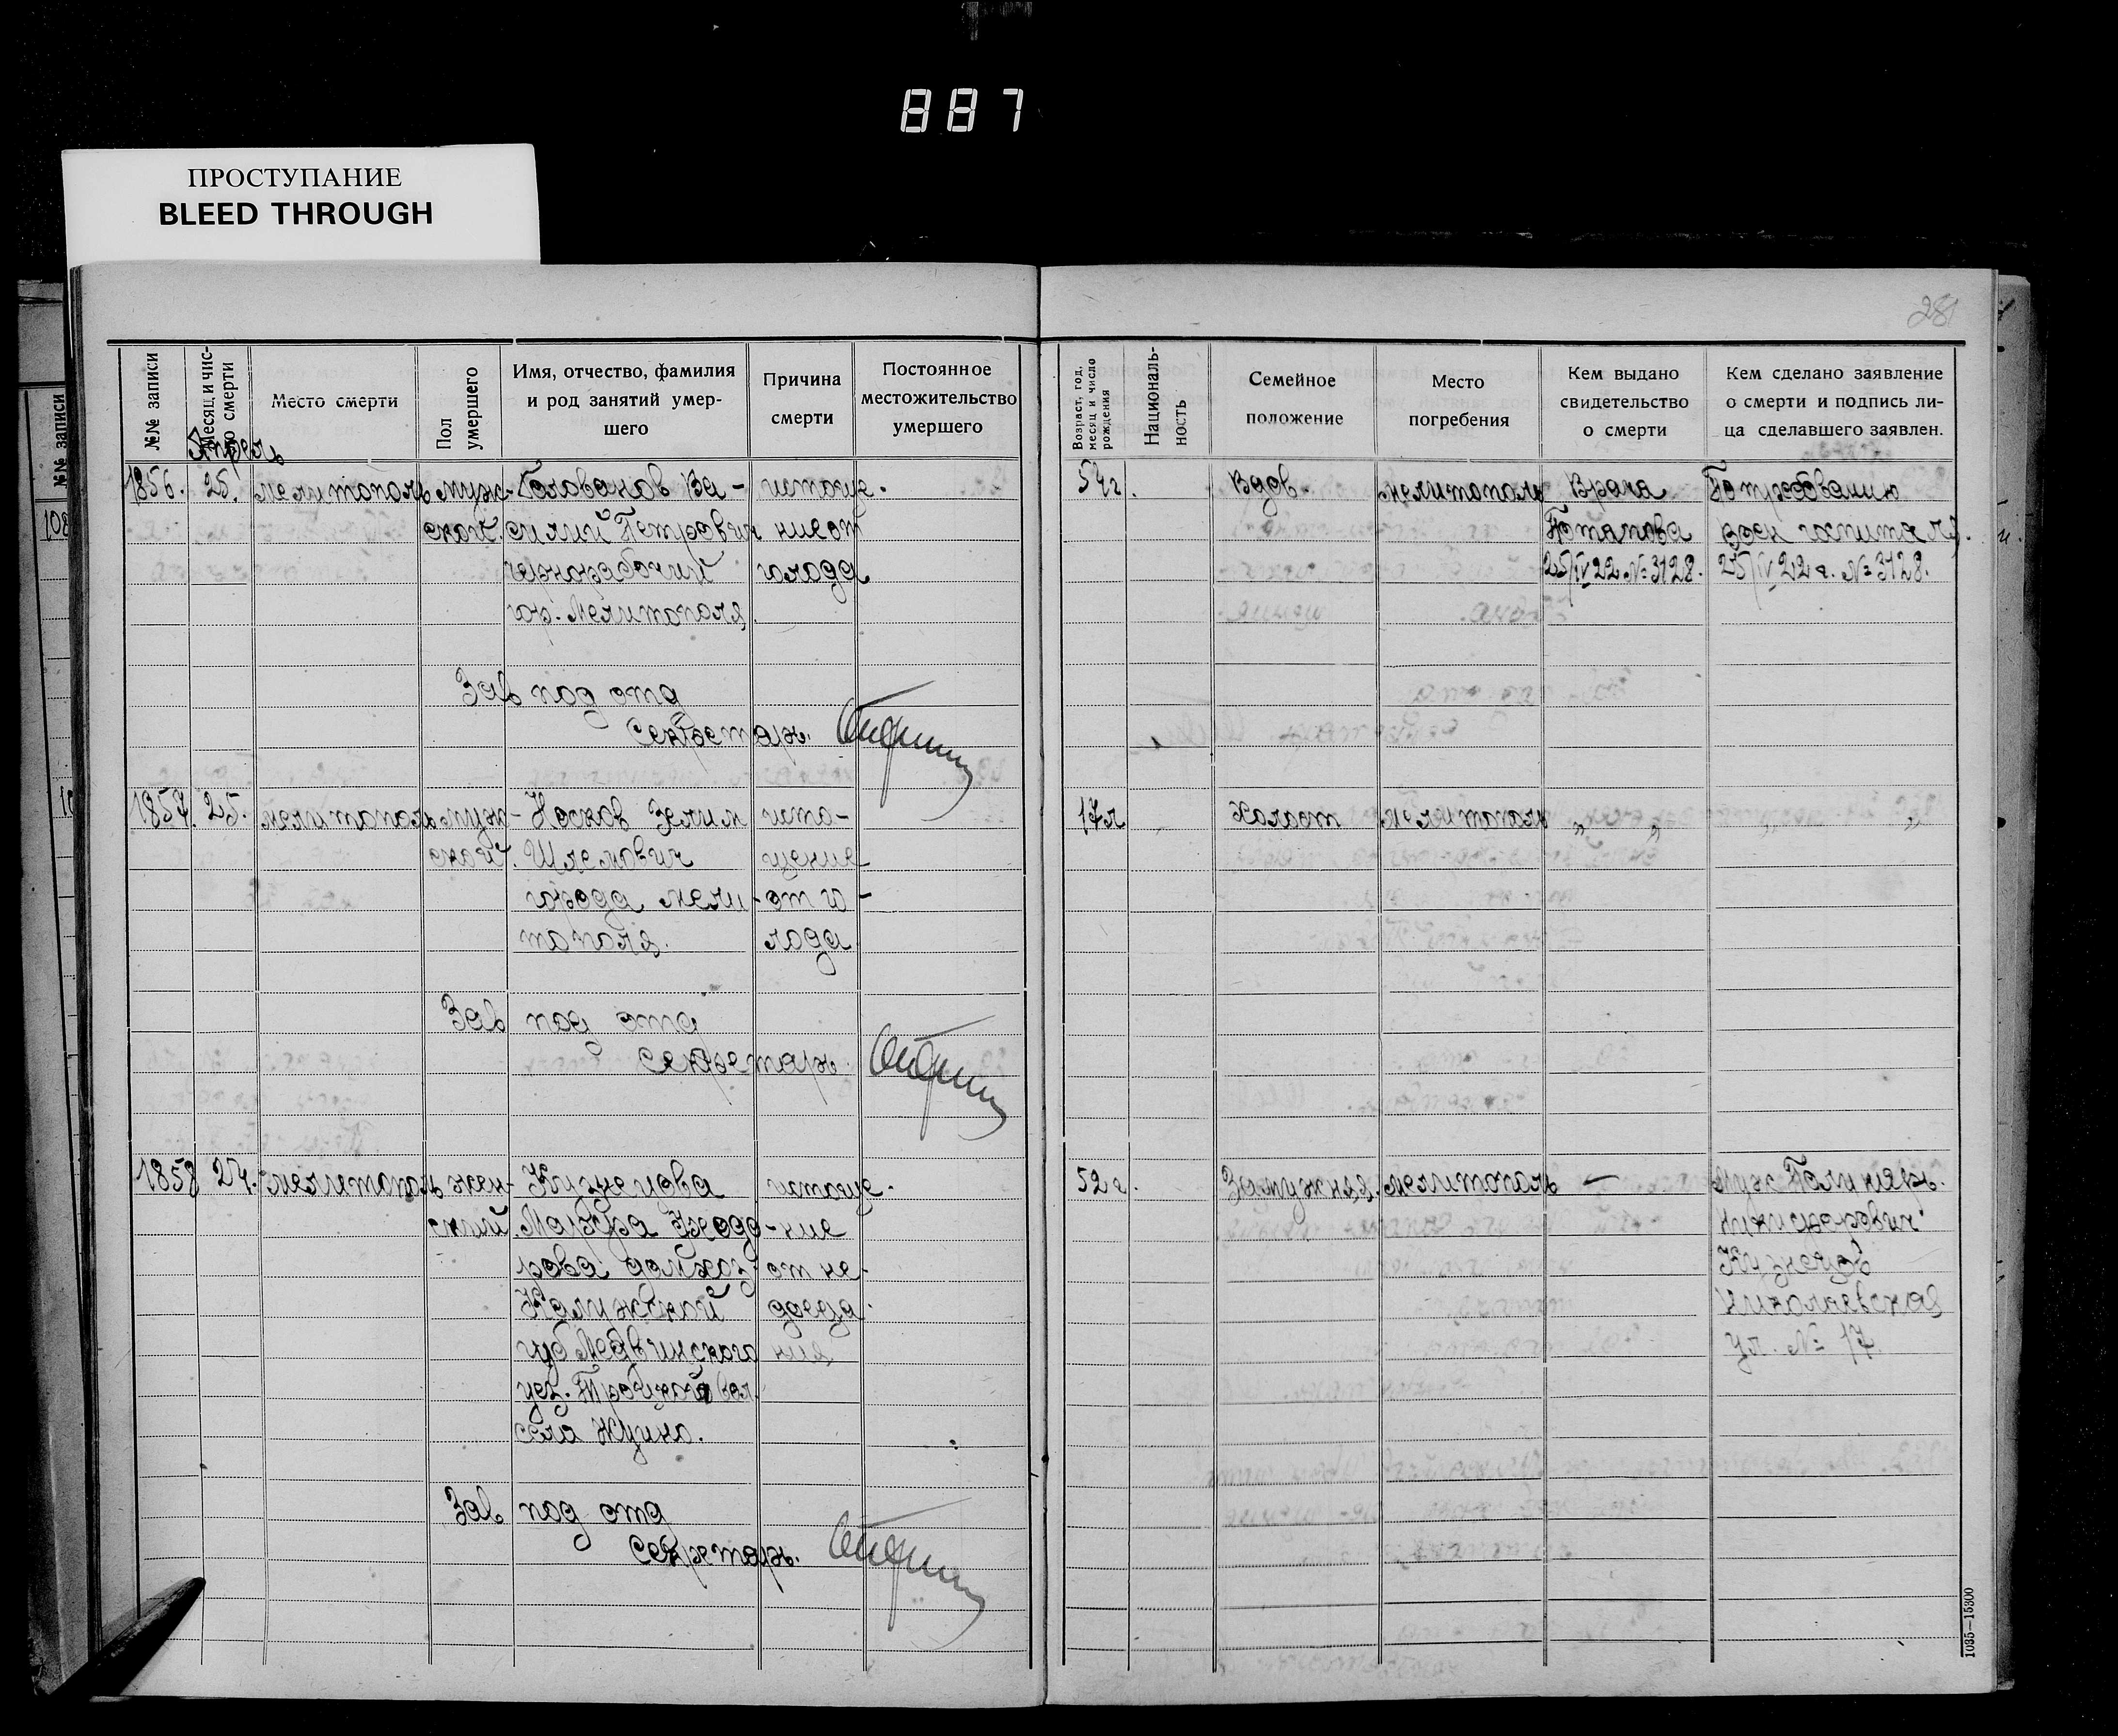 887
ПРОСТУПАНИЕ
BLEED THROUGH
281
№№ записи
Месяц и чис-
ло смерти
Место смерти
Пол
умершего
Имя, отчество, фамилия
и род занятий умер-
шего
Причина
смерти
Постоянное
местожительство
умершего
Возраст, год,
месяц и число
рождения
Националь-
ность
Семейное
положение
Место
погребения
Кем выдано
свидетельство
о смерти
Кем сделано заявление
о смерти и подпись ли-
ца сделавшего заявлен.
№№ записи
108
Апрель
1856. 25. Мелитополь муж- Голованов Ва- истоще- 54 г. Вдов. Мелитополь Врача По требованию
ской. силий Петрович ние от Потапова воен госпиталя.
чернорабочий голода 25/IV 22 № 3128. 25/IV 22 г. № 3128.
гор. Мелитополя
Зав под отд
Секретарь.
1857. 25. Мелитополь муж- Носков Зелим исто- 17 л Холост Мелитополь „ „ „ „
ской. Шлемович щение
города Мели- от го-
тополя. лода
Зав под отд
Секретарь.
1858 24. Мелитополь жен- Кузнецова истоще- 52 г. Замужняя. Мелитополь — Муж
ский. Марфа -ние
рова домхоз. от не- Кузнецов
Калужской доеда- Николаевская
губ Медынского ния ул. № 17.
уез. Троицкой вол.
села
Зав под отд
Секретарь.
1035—15300